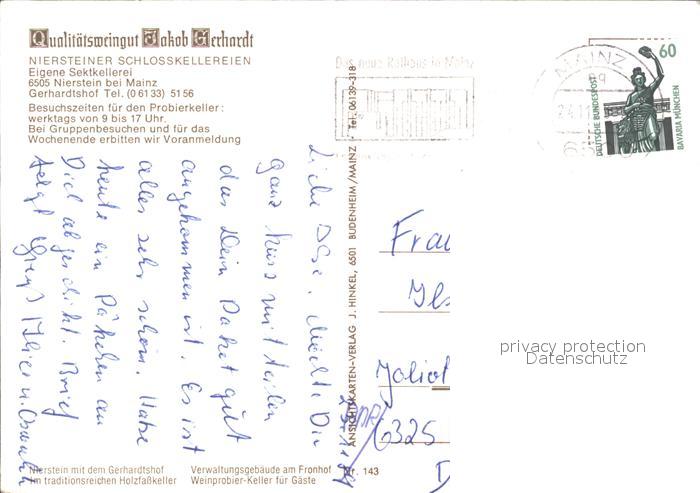 Qualitätsweingut Jakob Gerhardt
NIERSTEINER SCHLOSSKELLEREIEN
Eigene Sektkellerei
6505 Nierstein bei Mainz
Gerhardtshof Tel. (0 61 33) 51 56
Besuchszeiten für den Probierkeller:
werktags von 9 bis 17 Uhr.
Bei Gruppenbesuchen und für das
Wochenende erbitten wir Voranmeldung
Das neue Rathaus in Mainz
MAINZ
60
DEUTSCHE BUNDESPOST
BAVARIA MÜNCHEN
Liebe Ilse, Möchte Dir
ganz kurz mitteilen
das Dein Paket gut
angekommen ist. Es ist
alles sehr schön. Habe
heute ein Päkchen an
Dich abgeschikt. Brief
folgt Gruß
ANSICHTSKARTEN-VERLAG J. HINKEL, 6501 BUDENHEIM/MAINZ · Tel. 06139-318
Frau
Ils
Joliot
DDR/6325
privacy protection
Datenschutz
Nierstein mit dem Gerhardtshof
im traditionsreichen Holzfaßkeller
Verwaltungsgebäude am Fronhof
Weinprobier-Keller für Gäste
Nr. 143